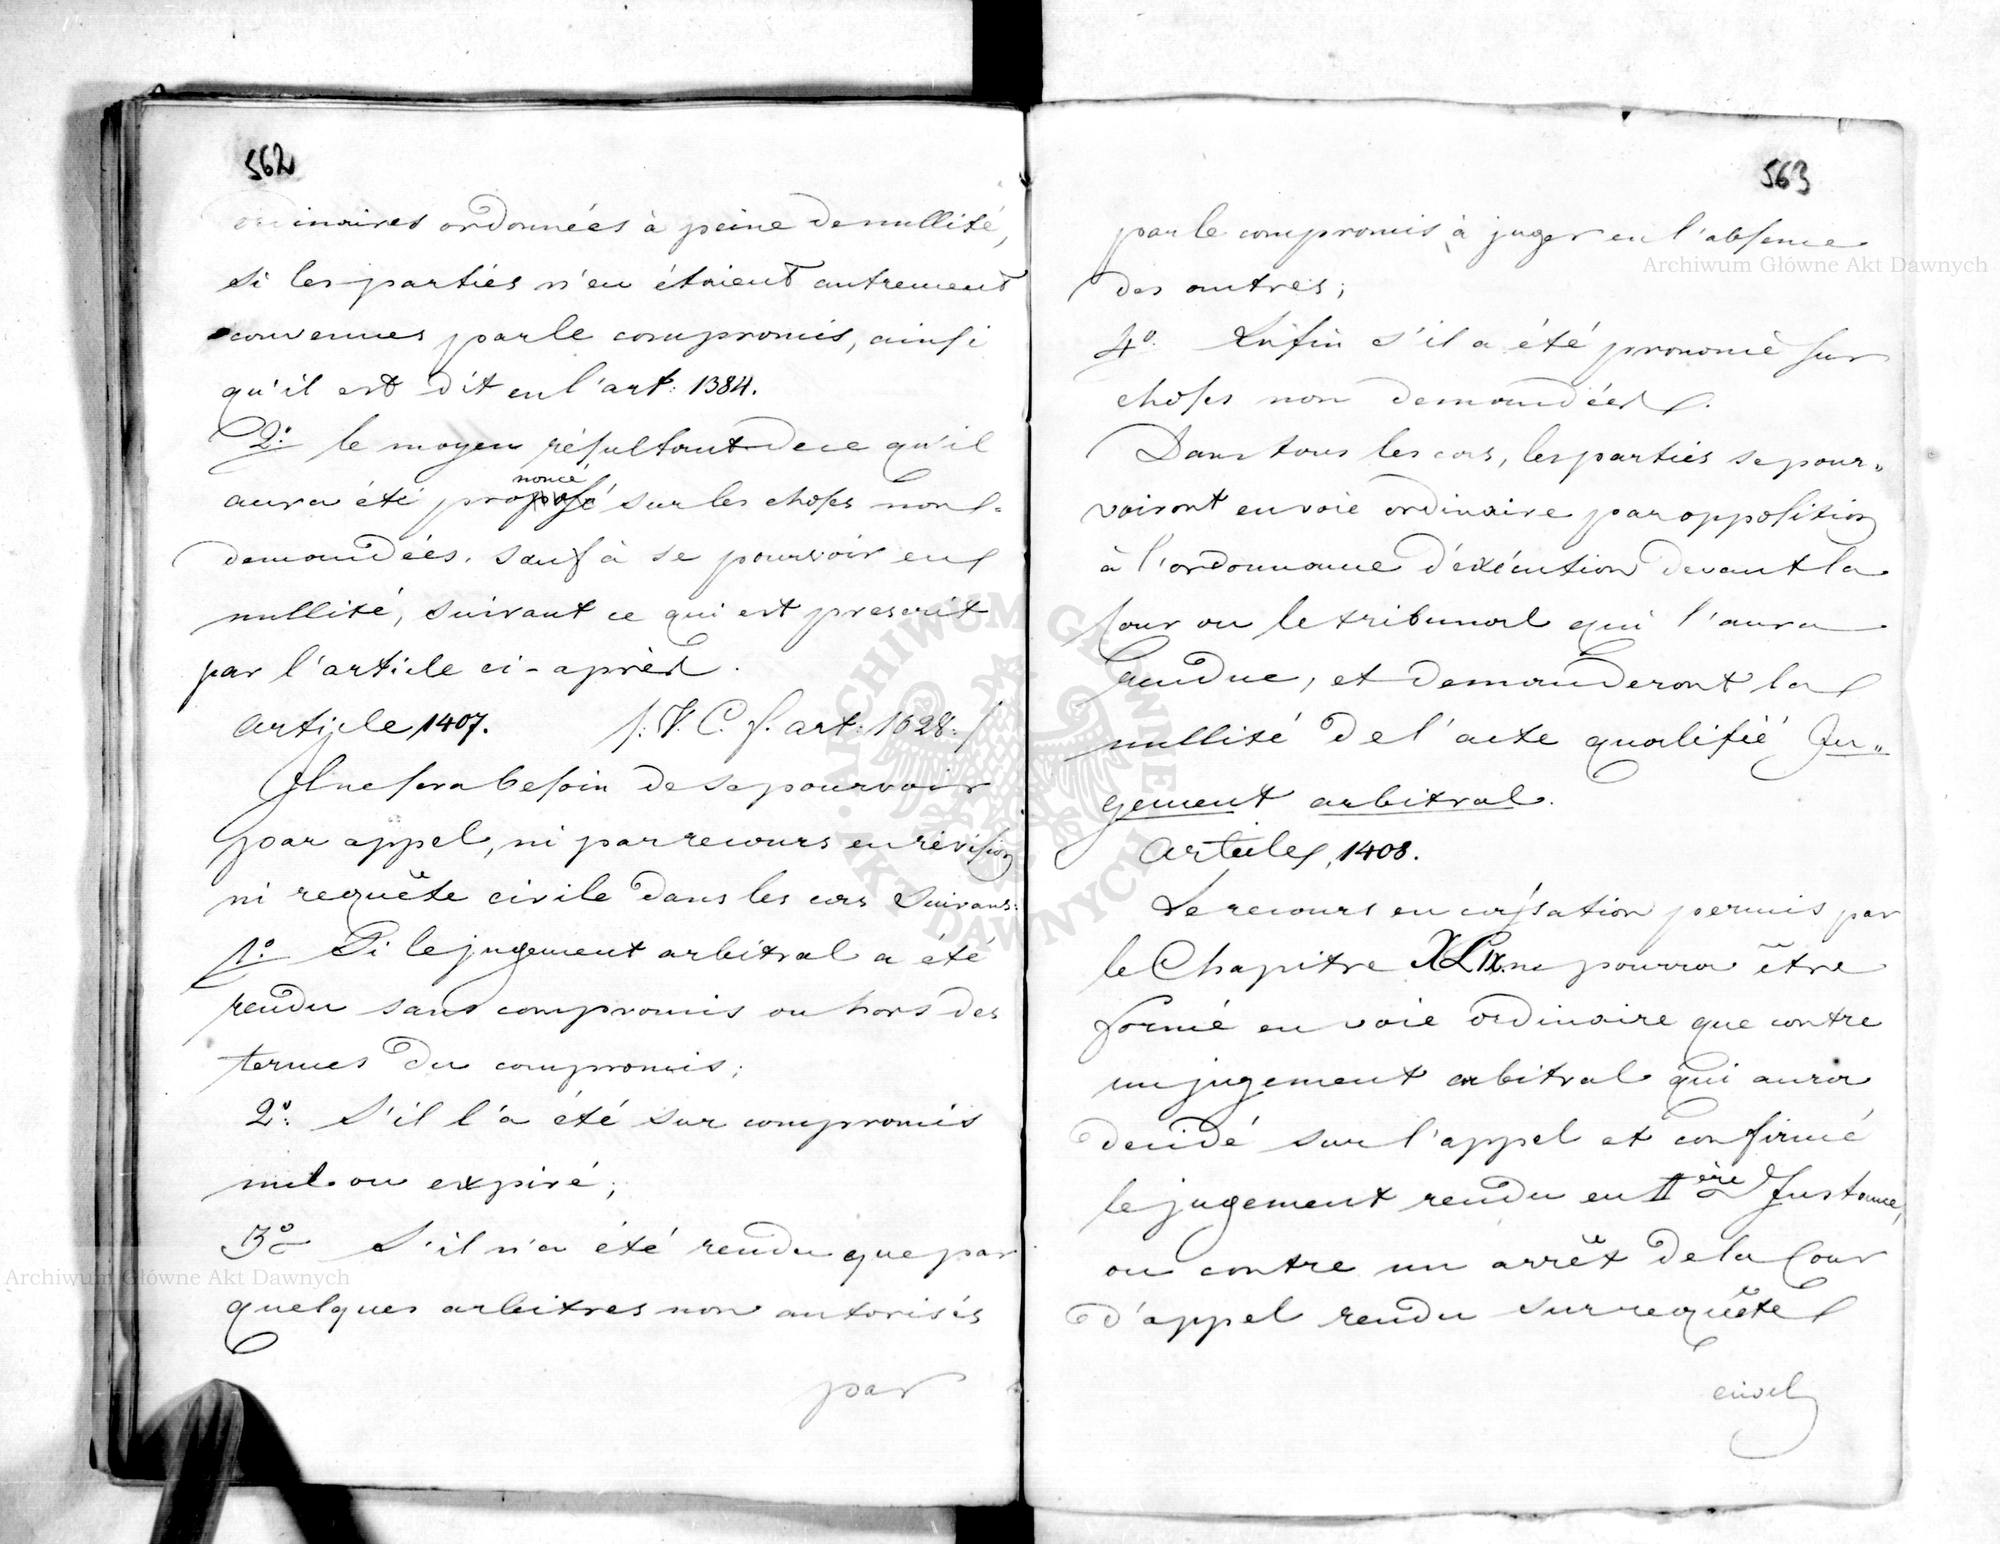 562
ordinaires ordonnées à peine de nullité,
si les parties n'en étoient autrement
convenues par le compromis, ainsi
qu'il est dit en l'art: 1384.
2º. le moyen résultant de ce qu'il
noncé
aura été proposé sur les choses non
demandées. sauf à se pourvoir en
nullité, suivant ce qui est prescrit
par l'article ci-après.
article 1407. /:V. C. f. art: 1028:/
Il ne sera besoin de se pourvoir
par appel, ni par recours en révision
ni requête civile dans les cas suivans:
1º. Si le jugement arbitral a été
rendu sans compromis ou hors des
termes du compromis;
2º. S'il l'a été sur compromis
nul ou expiré;
3º S'il n'a été rendu que par
quelques arbitres non autorisés
par
563
par le compromis à juger en l'absence
des autres;
4º. Enfin s'il a été prononcé sur
choses non demandées.
Dans tous les cas, les parties se pour„
voiront en voie ordinaire par opposition
à l'ordonnance d'éxécution devant la
Cour ou le tribunal qui l'aura
rendue, et demanderont la
nullité de l'acte qualifié Ju„
gement arbitral.
Article, 1408.
Le recours en cassation permis par
le Chapitre XLIX. ne pourra être
formé en voie ordinaire que contre
un jugement arbitral qui aura
décidé sur l'appel et confirmé
le jugement rendu en Iière Instance,
ou contre un arrêt de la Cour
d'appel rendu sur requête
civile
Archiwum Główne Akt Dawnych
Archiwum Główne Akt Dawnych
· ARCHIWUM GŁÓWNE · AKT DAWNYCH